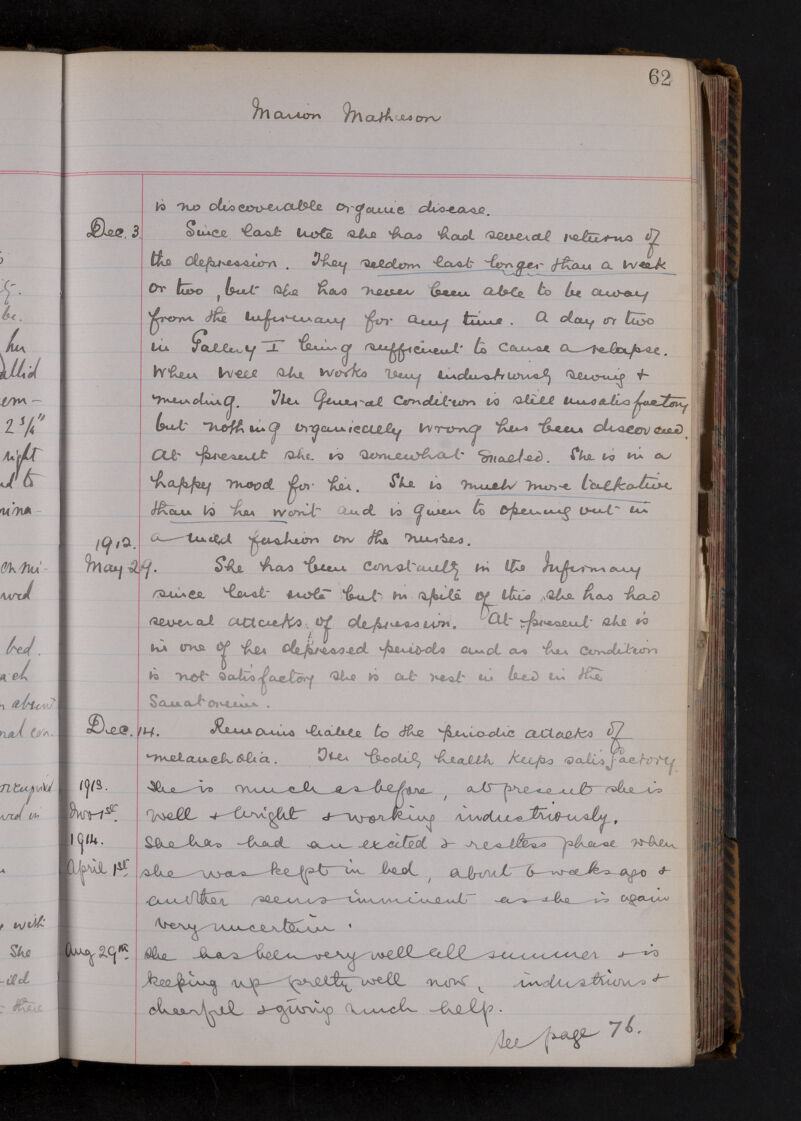 62
Marion Matheson
is no discoverable organic disease.
Dec. 3. Since last note she has had several returns of
the depression. They seldom last longer than a week
or two, but she has never been able to be away
from the infirmary for any time. A day or two
in Gallery I being sufficient to cause a relapse.
When well she works very industriously sewing +
mending. Her General condition is still unsatisfactory
but nothing organically wrong has been discovered.
At present she is somewhat exalted. She is in a
happy mood for her. She is much more talkative
than is her wont and is given to opening out in
1912. a mild fashion on the nurses.
May 29. She has been constantly in the Infirmary
since last note but in spite of this she has had
several attacks of depression. At present she is
in one of her depressed periods and as her condition
is not satisfactory she is at rest in bed in the
Sanatorium.
Dec. 14. Remains liable to the periodic attacks of
melancholia. Her bodily health keeps satisfactory.
1913. She is much as before, at present she is
well + bright + working industriously.
1914. She has had an excited & restless phase when
April 1st she was kept in bed, about 6 weeks ago +
another seems imminent as she is again
very uncertain.
Aug 29th. She has been very well all summer + is
keeping up pretty well now, industrious +
cheerful & giving much help.
See page 76.